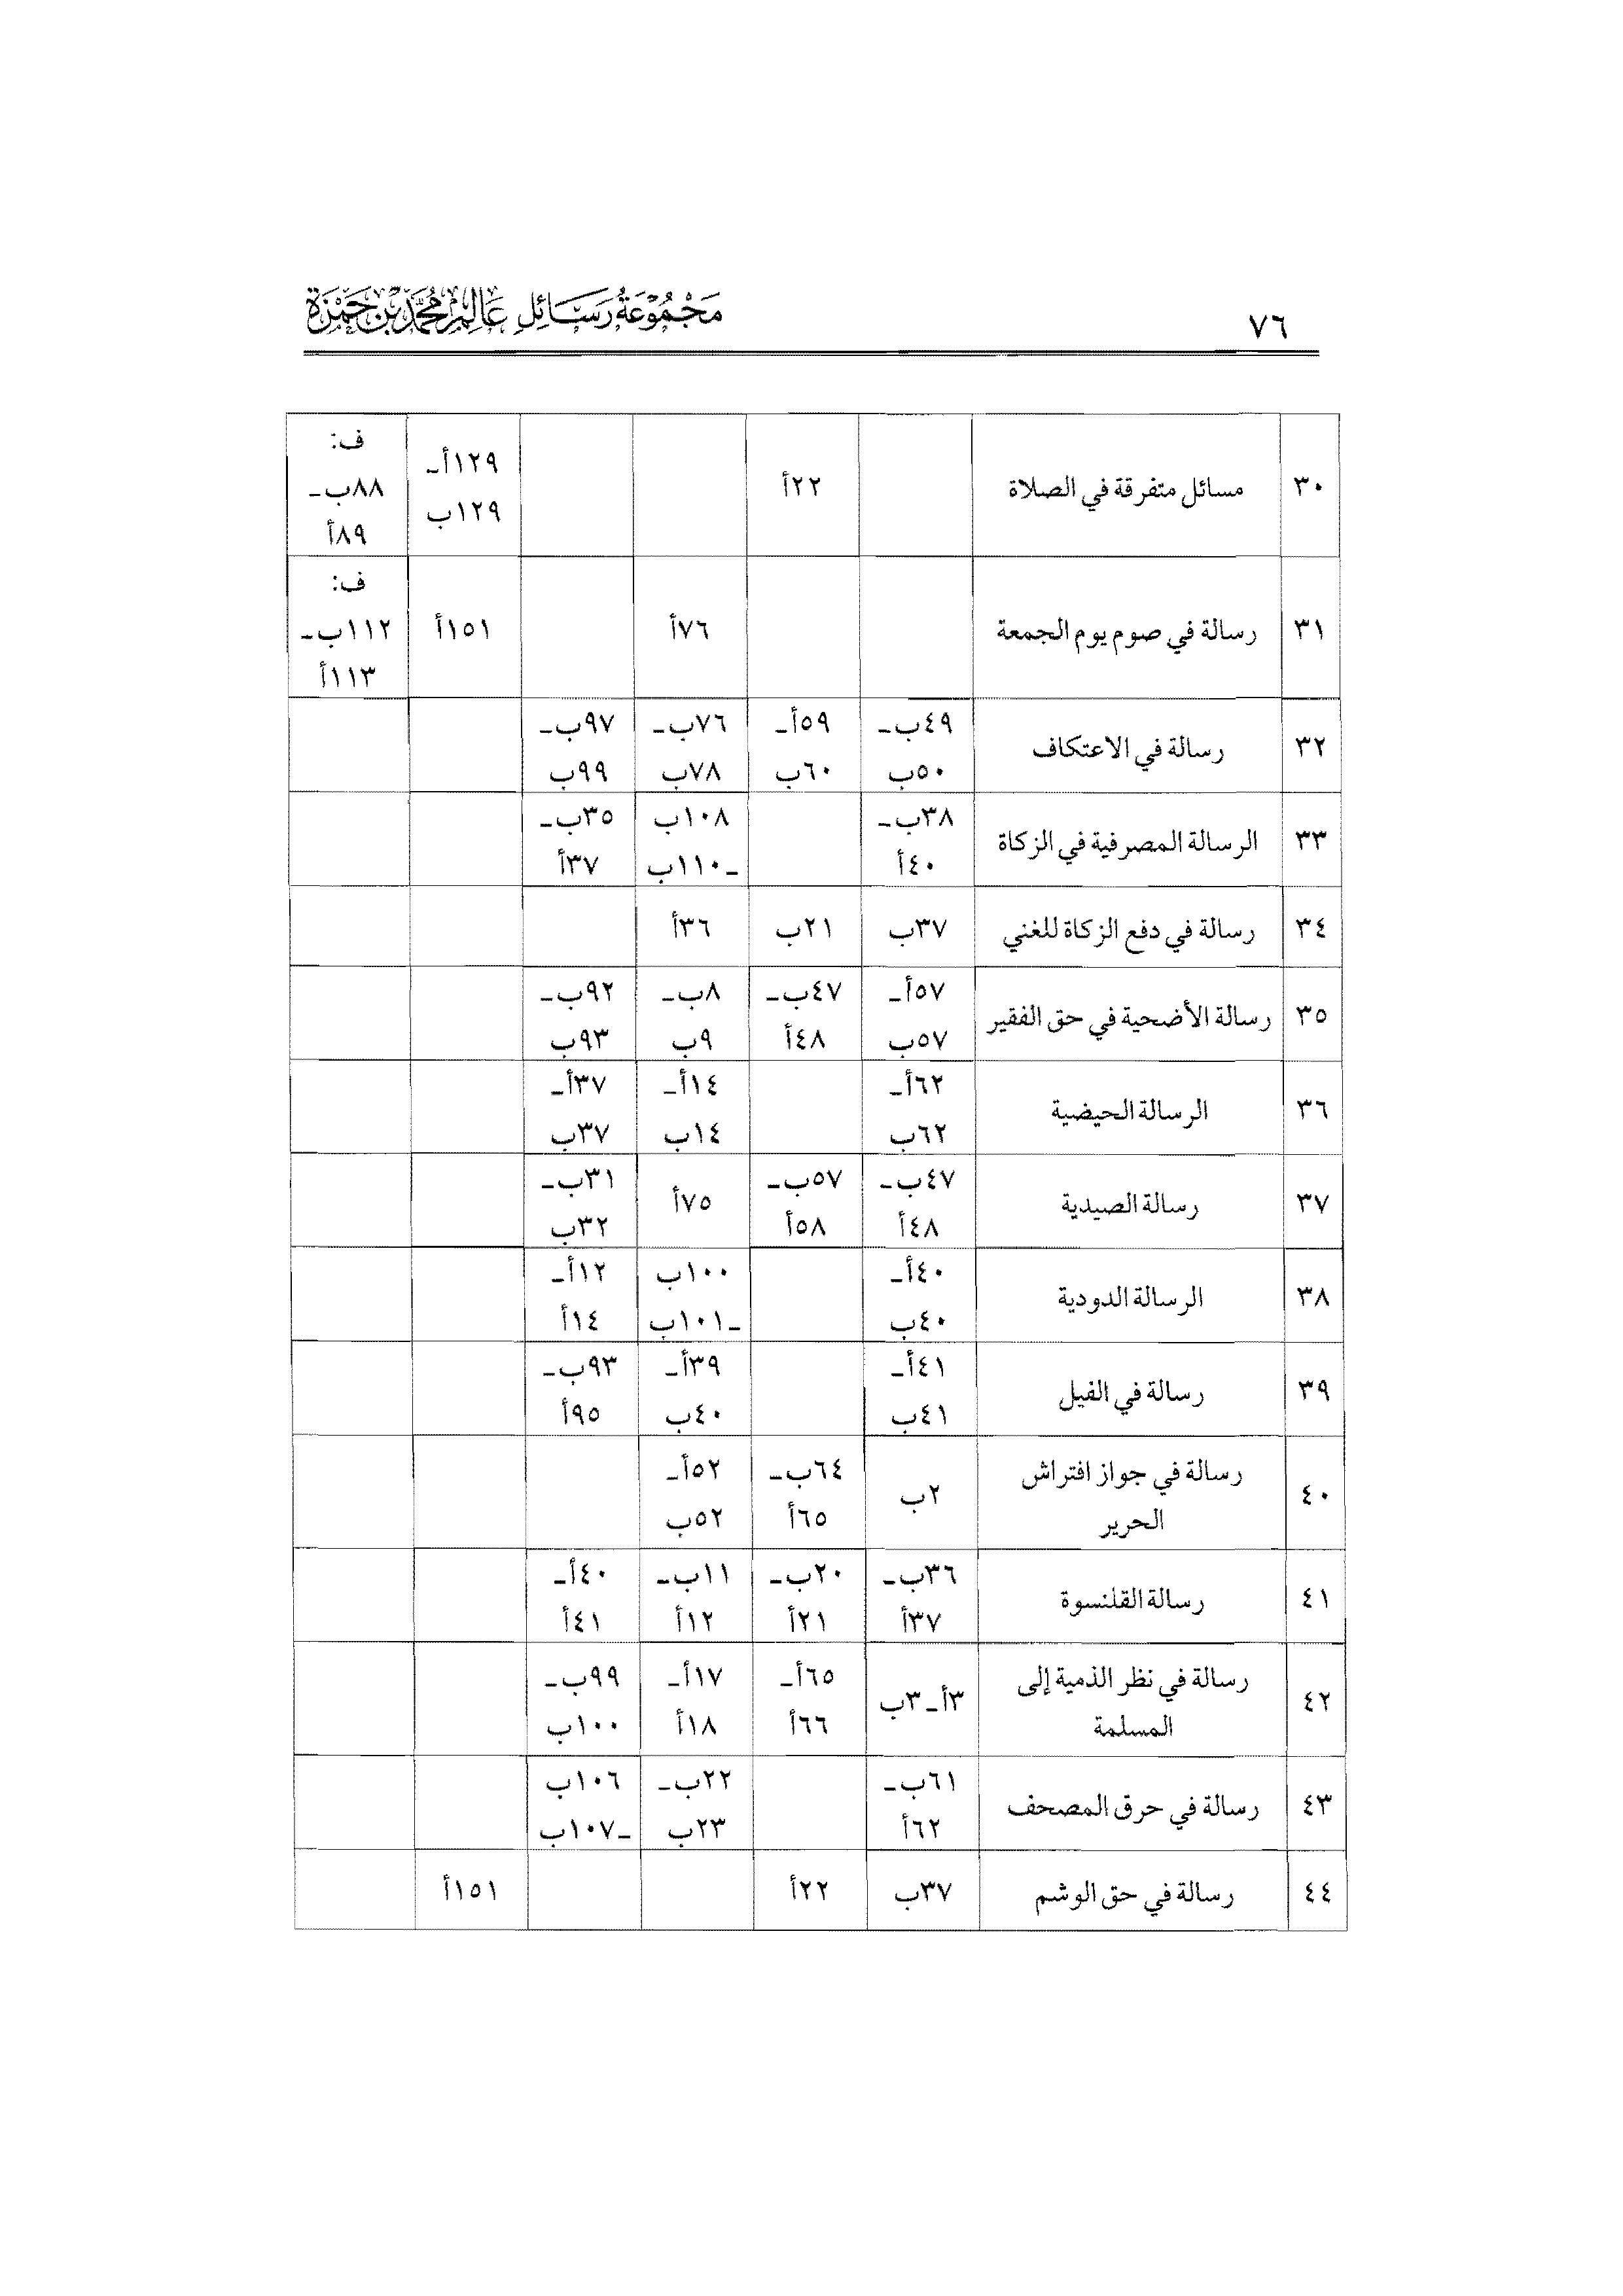 ٧٦
مَجْمُوْعَةُ رَسَائِلِ عَالِم مُحَمَّد بْن حَمْزَة
٣٠ مسائل متفرقة في الصلاة ٢٢أ ١٢٩أ- ١٢٩ب ف: ٨٨ب- ٨٩أ
٣١ رسالة في صوم يوم الجمعة ٧٦أ ١٥١أ ف: ١١٢ب- ١١٣أ
٣٢ رسالة في الاعتكاف ٤٩ب- ٥٠ب ٥٩أ- ٦٠ب ٧٦ب- ٧٨ب ٩٧ب- ٩٩ب
٣٣ الرسالة المصرفية في الزكاة ٣٨ب- ٤٠أ ١٠٨ب -١١٠ب ٣٥ب- ٣٧أ
٣٤ رسالة في دفع الزكاة للغني ٣٧ب ٢١ب ٣٦أ
٣٥ رسالة الأضحية في حق الفقير ٥٧أ- ٥٧ب ٤٧ب- ٤٨أ ٨ب- ٩ب ٩٢ب- ٩٣ب
٣٦ الرسالة الحيضية ٦٢أ- ٦٢ب ١٤أ- ١٤ب ٣٧أ- ٣٧ب
٣٧ رسالة الصيدية ٤٧ب- ٤٨أ ٥٧ب- ٥٨أ ٧٥أ ٣١ب- ٣٢ب
٣٨ الرسالة الدودية ٤٠أ- ٤٠ب ١٠٠ب -١٠١ب ١٢أ- ١٤أ
٣٩ رسالة في الفيل ٤١أ- ٤١ب ٣٩أ- ٤٠ب ٩٣ب- ٩٥أ
٤٠ رسالة في جواز افتراش الحرير ٢ب ٦٤ب- ٦٥أ ٥٢أ- ٥٢ب
٤١ رسالة القلنسوة ٣٦ب- ٣٧أ ٢٠ب- ٢١أ ١١ب- ١٢أ ٤٠أ- ٤١أ
٤٢ رسالة في نظر الذمية إلى المسلمة ٣أ-٣ب ٦٥أ- ٦٦أ ١٧أ- ١٨أ ٩٩ب- ١٠٠ب
٤٣ رسالة في حرق المصحف ٦١ب- ٦٢أ ٢٢ب- ٢٣ب ١٠٦ب -١٠٧ب
٤٤ رسالة في حق الوشم ٣٧ب ٢٢أ ١٥١أ